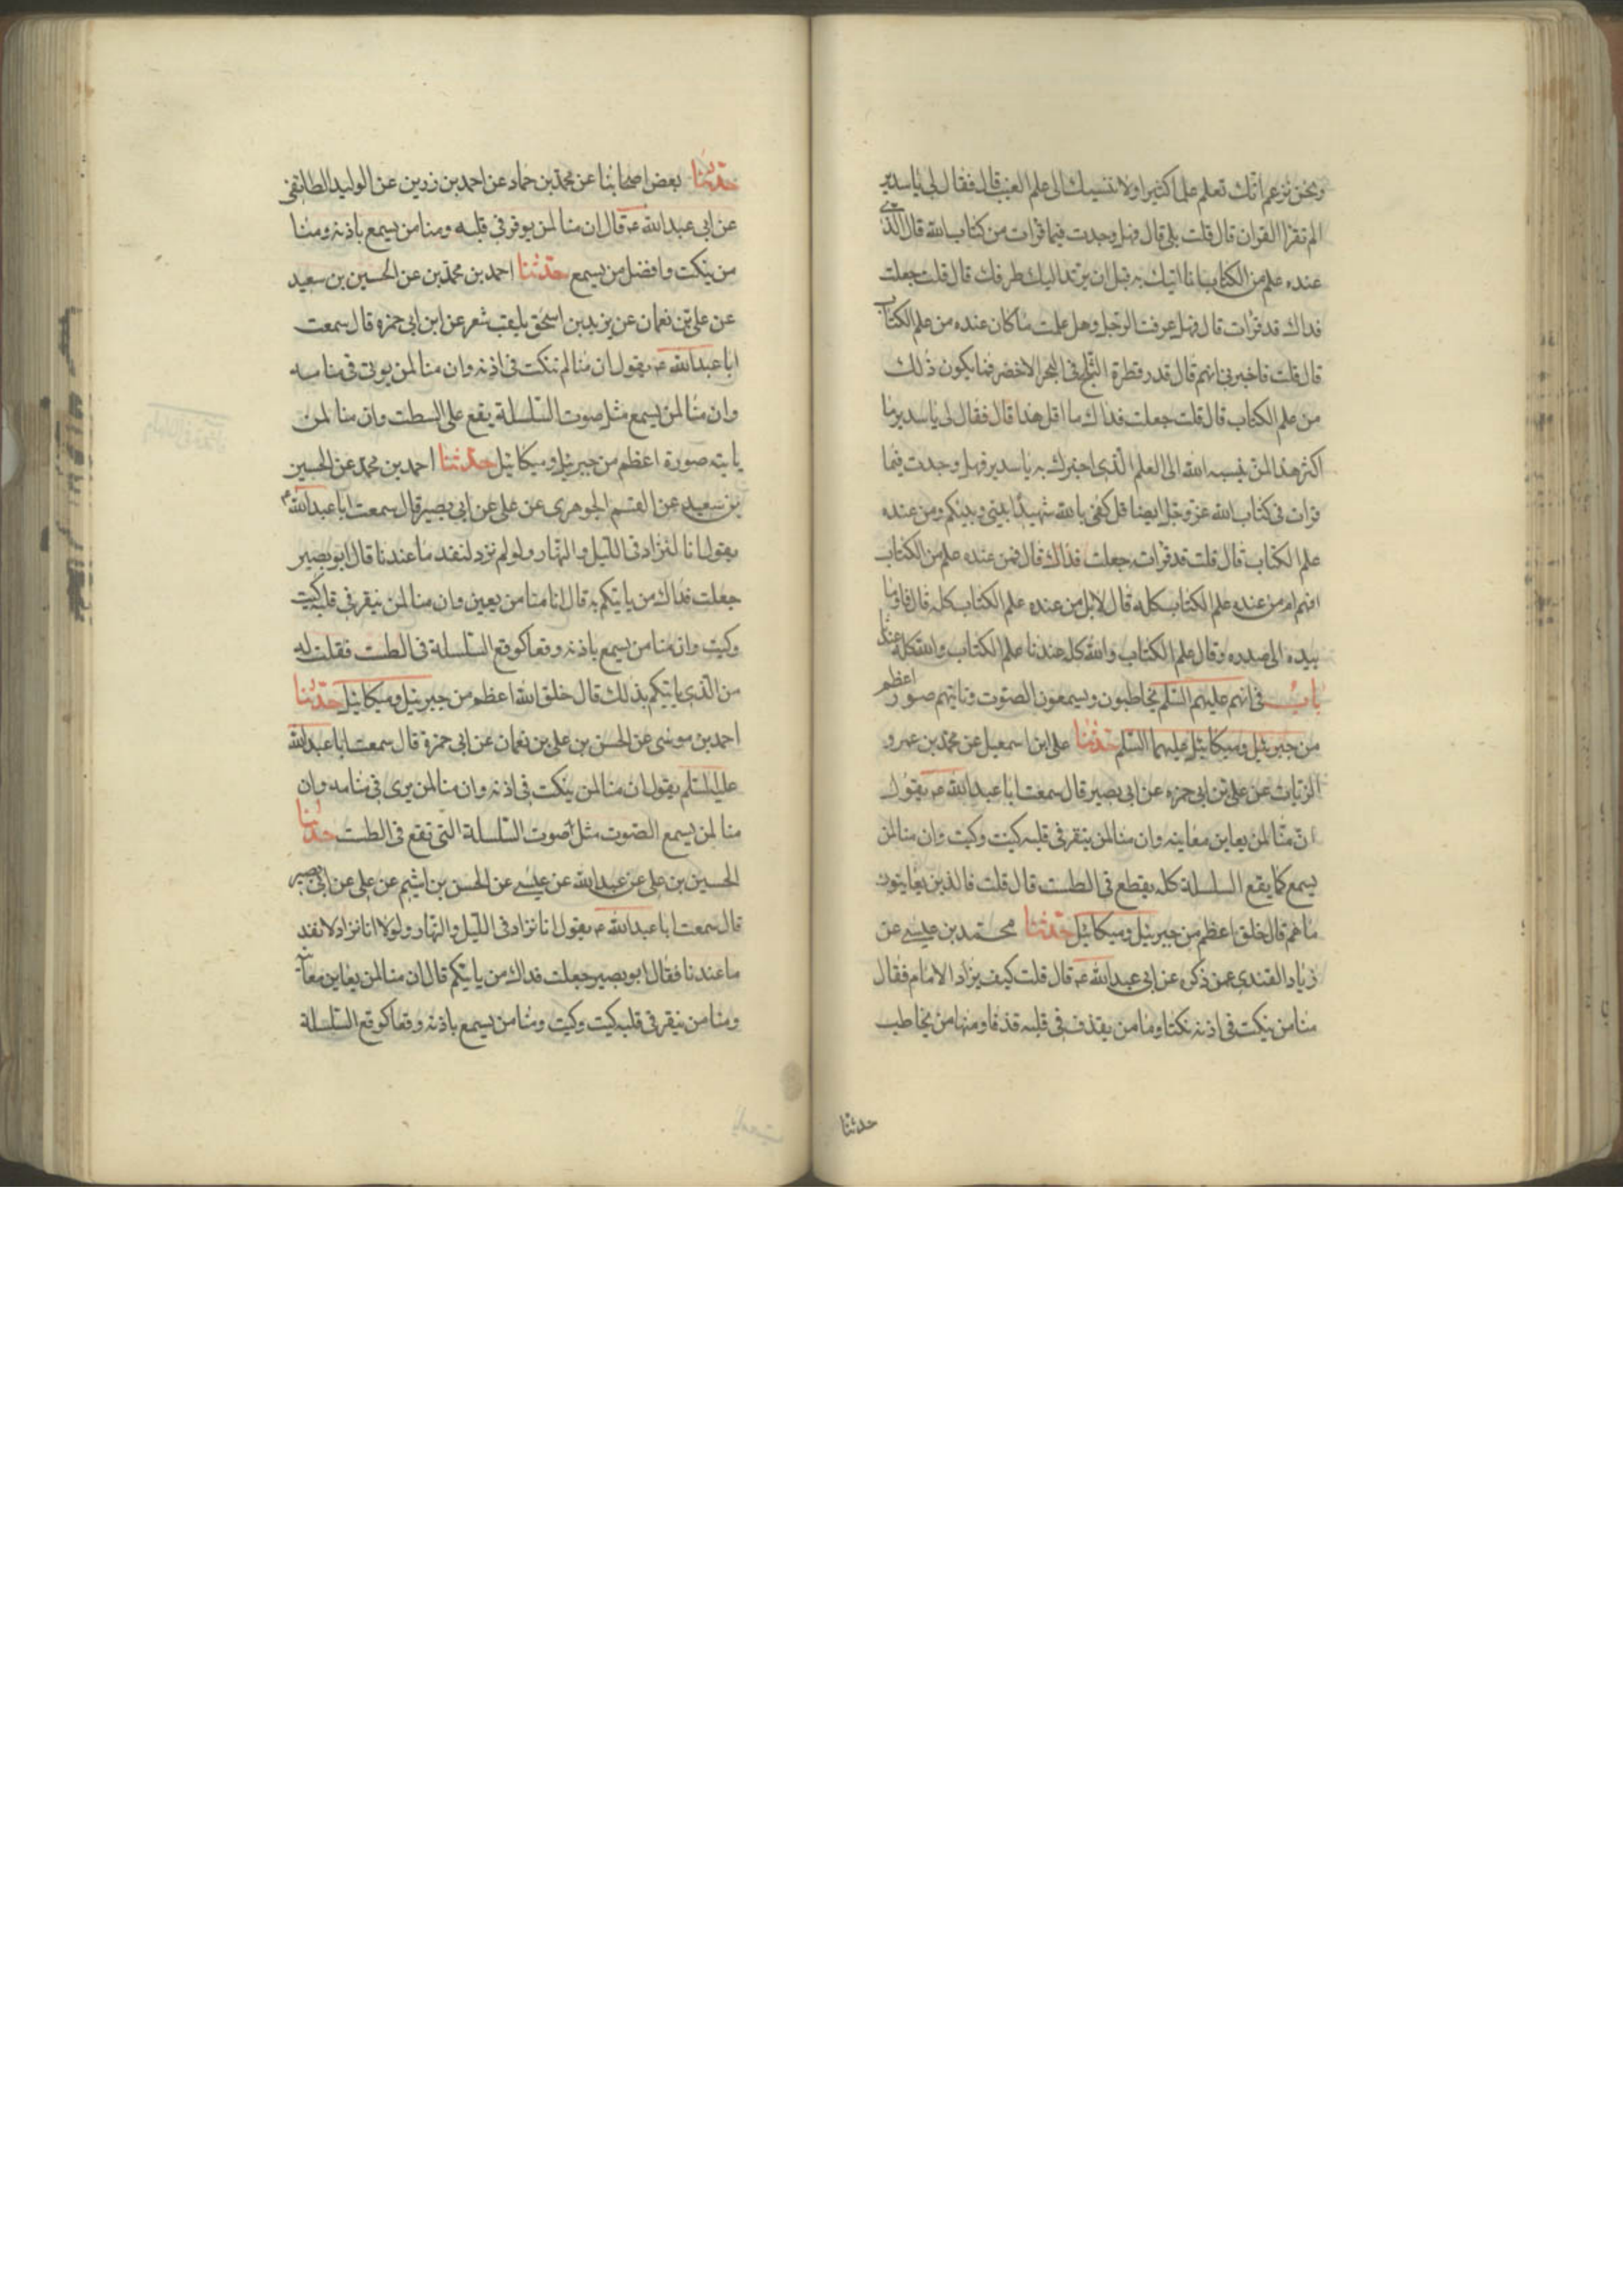 ونحن نزعم انك تعلم علما كثيرا ولا ننسبك الى علم الغيب قال فقال لى يا سدير
الم تقرا القران قال قلت بلى قال فهل وجدت فيما قرات من كتاب الله قال الذى
عنده علم من الكتاب انا اتيك به قبل ان يرتد اليك طرفك قال قلت جعلت
فداك قد قرات قال فهل عرفت الرجل وهل علمت ما كان عنده من علم الكتاب
قال قلت فاخبرنى افهم قال قدر قطرة الثلج فى البحر الاخضر فما يكون ذلك
من علم الكتاب قال قلت جعلت فداك ما اقل هذا قال فقال لى يا سدير ما
اكثر هذا لمن ينسبه الله الى العلم الذى اخبرك به يا سدير فهل وجدت فيما
قرات فى كتاب الله عز وجل ايضا قل كفى بالله شهيدا بينى وبينكم ومن عنده
علم الكتاب قال قلت قد قراته جعلت فداك قال فمن عنده علم من الكتاب
افهم ام من عنده علم الكتاب كله قال لا بل من عنده علم الكتاب كله قال فاوما
بيده الى صدره وقال علم الكتاب والله كله عندنا علم الكتاب والله كله عندنا
باب فى انهم عليهم السلم يخاطبون ويسمعون الصوت وتاتيهم صور اعظم
من جبرئيل وميكائيل عليهما السلم حدثنا على ابن اسمعيل عن محمد بن عمرو
الزيات عن على بن ابى حمزه عن ابى بصير قال سمعت ابا عبد الله ع يقول
ان منا لمن يعاين معاينه وان منا لمن ينقر فى قلبه كيت وكيت وان منا لمن
يسمع كما يقع السلسلة كله يقطع فى الطست قال قلت فالذين يعاينون
ما هم قال خلق اعظم من جبرئيل وميكائيل حدثنا محمد بن عيسى عن
زياد القندى عمن ذكره عن ابى عبد الله ع قال قلت كيف يزاد الامام فقال
منا من ينكت فى اذنه نكتا ومنا من يقذف فى قلبه قذفا ومنها من يخاطب
حدثنا
حدثنا بعض اصحابنا عن محمد بن حماد عن احمد بن زرين عن الوليد الطائفى
عن ابى عبد الله ع قال ان منا لمن يوقر فى قلبه ومنا من يسمع باذنه ومنا
من ينكت وافضل من يسمع حدثنا احمد بن محمد بن عن الحسين بن سعيد
عن على بن نعمان عن يزيد بن اسحق يلقب شعر عن ابن ابى حمزه قال سمعت
ابا عبد الله ع يقول ان منا لم ننكت فى اذنه وان منا لمن يوتى فى منامه
وان منا لمن يسمع مثل صوت السلسلة يقع على السطت وان منا لمن
ياتيه صورة اعظم من جبرئيل وميكائيل حدثنا احمد بن محمد عن الحسين
بن سعيد عن القسم الجوهرى عن على عن ابى بصير قال سمعت ابا عبد الله ع
يقول انا لنزاد فى الليل والنهار ولو لم نزد لنفد ما عندنا قال ابو بصير
جعلت فداك من ياتيكم به قال انا منا من يعين وان منا لمن ينقر فى قلبه كيت
وكيت وان منا من يسمع باذنه وقعا كوقع السلسلة فى الطست فقلت له
من الذى ياتيكم بذلك قال خلق الله اعظم من جبرئيل وميكائيل حدثنا
احمد بن موسى عن الحسن بن على بن نعمان عن ابى حمزة قال سمعت ابا عبد الله
عليه السلم يقول ان منا لمن ينكت فى اذنه وان منا لمن يرى فى منامه وان
منا لمن يسمع الصوت مثل صوت السلسلة التى تقع فى الطست حدثنا
الحسين بن على عن عبد الله عن عيسى عن الحسن بن اشيم عن على عن ابى بصير
قال سمعت ابا عبد الله ع يقول انا نزاد فى الليل والنهار ولولا انا نزاد لا نفد
ما عندنا فقال ابو بصير جعلت فداك من ياتيكم قال ان منا لمن يعاين معاينه
ومنا من ينقر فى قلبه كيت وكيت ومنا من يسمع باذنه وقعا كوقع السلسلة